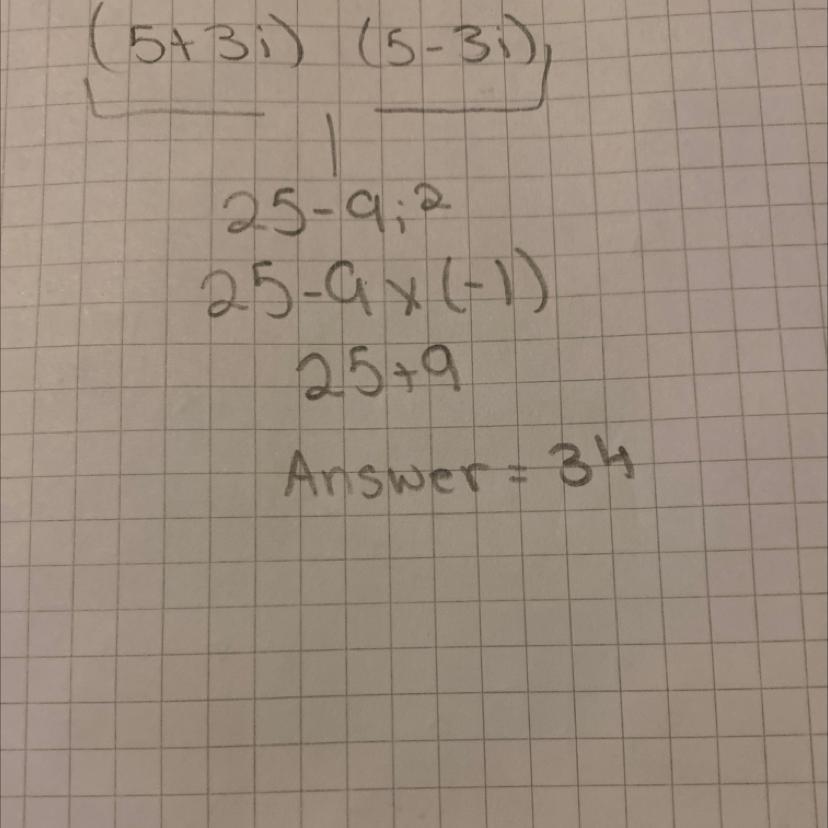 (5+3i) (5-3i)
25-9i²
25-9x(-1)
25+9
Answer = 34